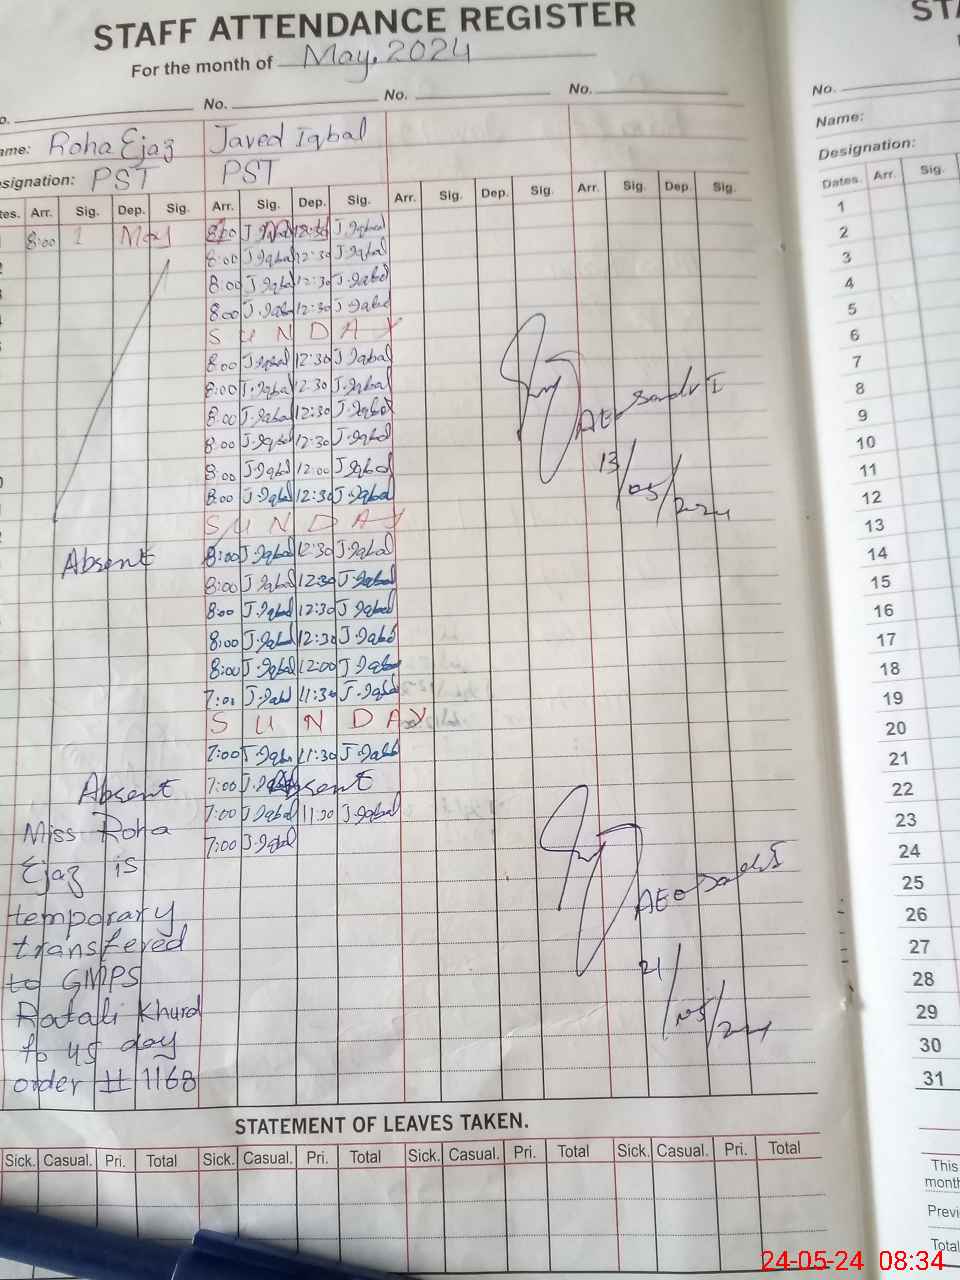 STAFF ATTENDANCE REGISTER
For the month of May, 2024
No. No. No.
Roha Ejaz Javed Iqbal
PST PST
Arr. Sig. Dep. Sig. Arr. Sig. Dep. Sig. Arr. Sig. Dep. Sig. Arr. Sig. Dep. Sig.
8:00 1 May 8:00 J.Iqbal 12:30 J.Iqbal
8:00 J.Iqbal 12:30 J.Iqbal
8:00 J.Iqbal 12:30 J.Iqbal
8:00 J.Iqbal 12:30 J.Iqbal
S U N D A Y
8:00 J.Iqbal 12:30 J.Iqbal
8:00 J.Iqbal 12:30 J.Iqbal
8:00 J.Iqbal 12:30 J.Iqbal
8:00 J.Iqbal 12:30 J.Iqbal
8:00 J.Iqbal 12:00 J.Iqbal
8:00 J.Iqbal 12:30 J.Iqbal
S U N D A Y
Absent 8:00 J.Iqbal 12:30 J.Iqbal
8:00 J.Iqbal 12:30 J.Iqbal
8:00 J.Iqbal 12:30 J.Iqbal
8:00 J.Iqbal 12:30 J.Iqbal
8:00 J.Iqbal 12:00 J.Iqbal
7:00 J.Iqbal 11:30 J.Iqbal
S U N D A Y
7:00 J.Iqbal 11:30 J.Iqbal
Absent 7:00 Absent
7:00 J.Iqbal 11:30 J.Iqbal
7:00 J.Iqbal
Miss Roha
Ejaz is
temporary
transfered
to GMPS
Ratali Khurd
fo 45 day
order # 1168
AEO
13/05/2024
AEO
21/05/2024
STATEMENT OF LEAVES TAKEN.
Sick. Casual. Pri. Total Sick. Casual. Pri. Total Sick. Casual. Pri. Total Sick. Casual. Pri. Total
No.
Name:
Designation:
Dates. Arr. Sig.
1
2
3
4
5
6
7
8
9
10
11
12
13
14
15
16
17
18
19
20
21
22
23
24
25
26
27
28
29
30
31
This
Total
24-05-24 08:34